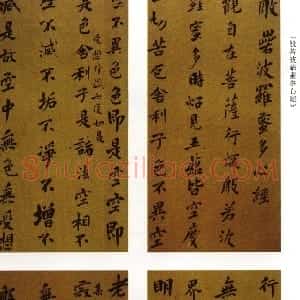 般若波羅蜜多經
觀自在菩薩行深般若波
羅蜜多時照見五蘊皆空度
一切苦厄舍利子色不異空
不異色色即是空即
受想行識亦復如是
色舍利子是諸空相不
生不滅不垢不淨不增不
是故空中無色無受想
行
無
界
明
老
集
Shufaziliao.COM